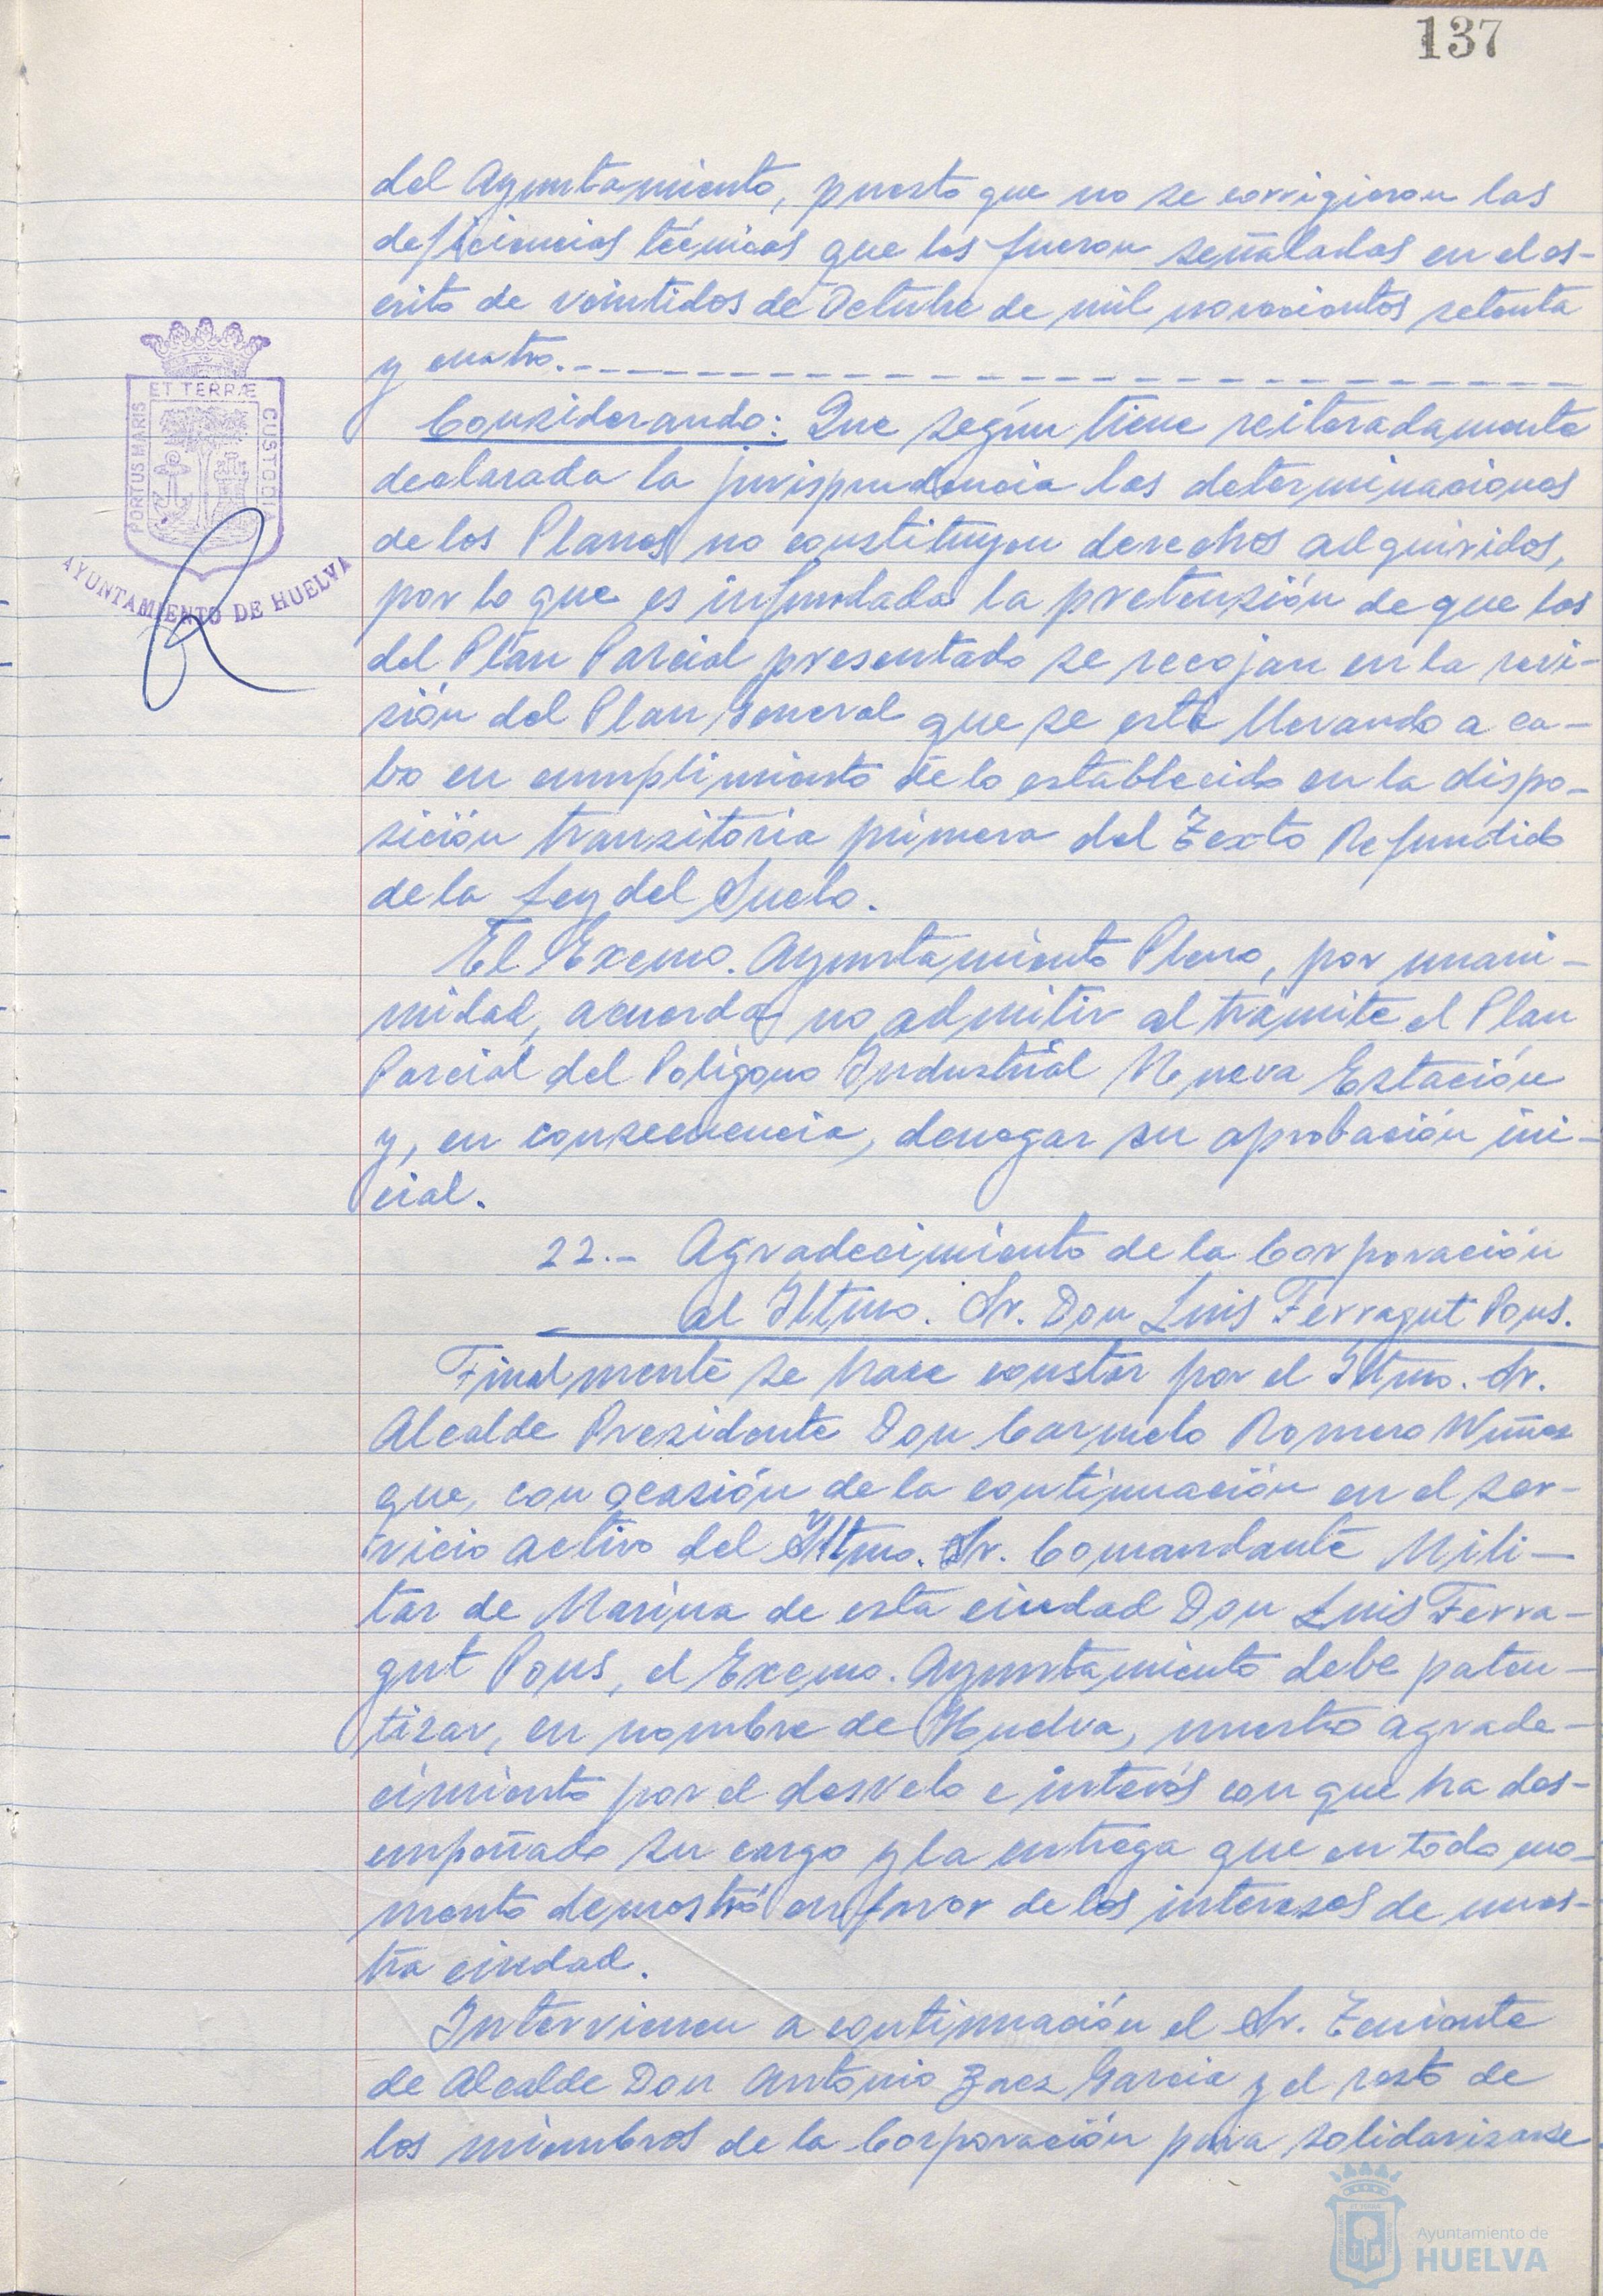 137
del Ayuntamiento, puesto que no se corrigieron las
deficiencias técnicas que les fueron señaladas en el es-
crito de veintidos de Octubre de mil novecientos setenta
y cuatro.
Considerando: Que según tiene reiteradamente
declarada la jurisprudencia las determinaciones
de los Planes no constituyen derechos adquiridos,
por lo que es infundada la pretensión de que las
del Plan Parcial presentado se recojan en la revi-
sión del Plan General que se está llevando a ca-
bo en cumplimiento de lo establecido en la dispo-
sición transitoria primera del Texto Refundido
de la Ley del Suelo.
El Excmo. Ayuntamiento Pleno, por unani-
midad, acuerda no admitir al trámite el Plan
Parcial del Polígono Industrial Nueva Estación
y, en consecuencia, denegar su aprobación ini-
cial.
22.- Agradecimiento de la Corporación
al Iltmo. Sr. Don Luis Ferragut Pons.
Finalmente se hace constar por el Iltmo. Sr.
Alcalde Presidente Don Carmelo Romero Nuñez
que, con ocasión de la continuación en el ser-
vicio activo del Iltmo. Sr. Comandante Mili-
tar de Marina de esta ciudad Don Luis Ferra-
gut Pons, el Excmo. Ayuntamiento debe paten-
tizar, en nombre de Huelva, nuestro agrade-
cimiento por el desvelo e interés con que ha des-
empeñado su cargo y la entrega que en todo mo-
mento demostró en favor de los intereses de nues-
tra ciudad.
Intervienen a continuación el Sr. Teniente
de Alcalde Don Antonio Baez Garcia y el resto de
los miembros de la Corporación para solidarizarse
PORTUS MARIS
ET TERRÆ
CUSTODIA
AYUNTAMIENTO DE HUELVA
Ayuntamiento de
HUELVA